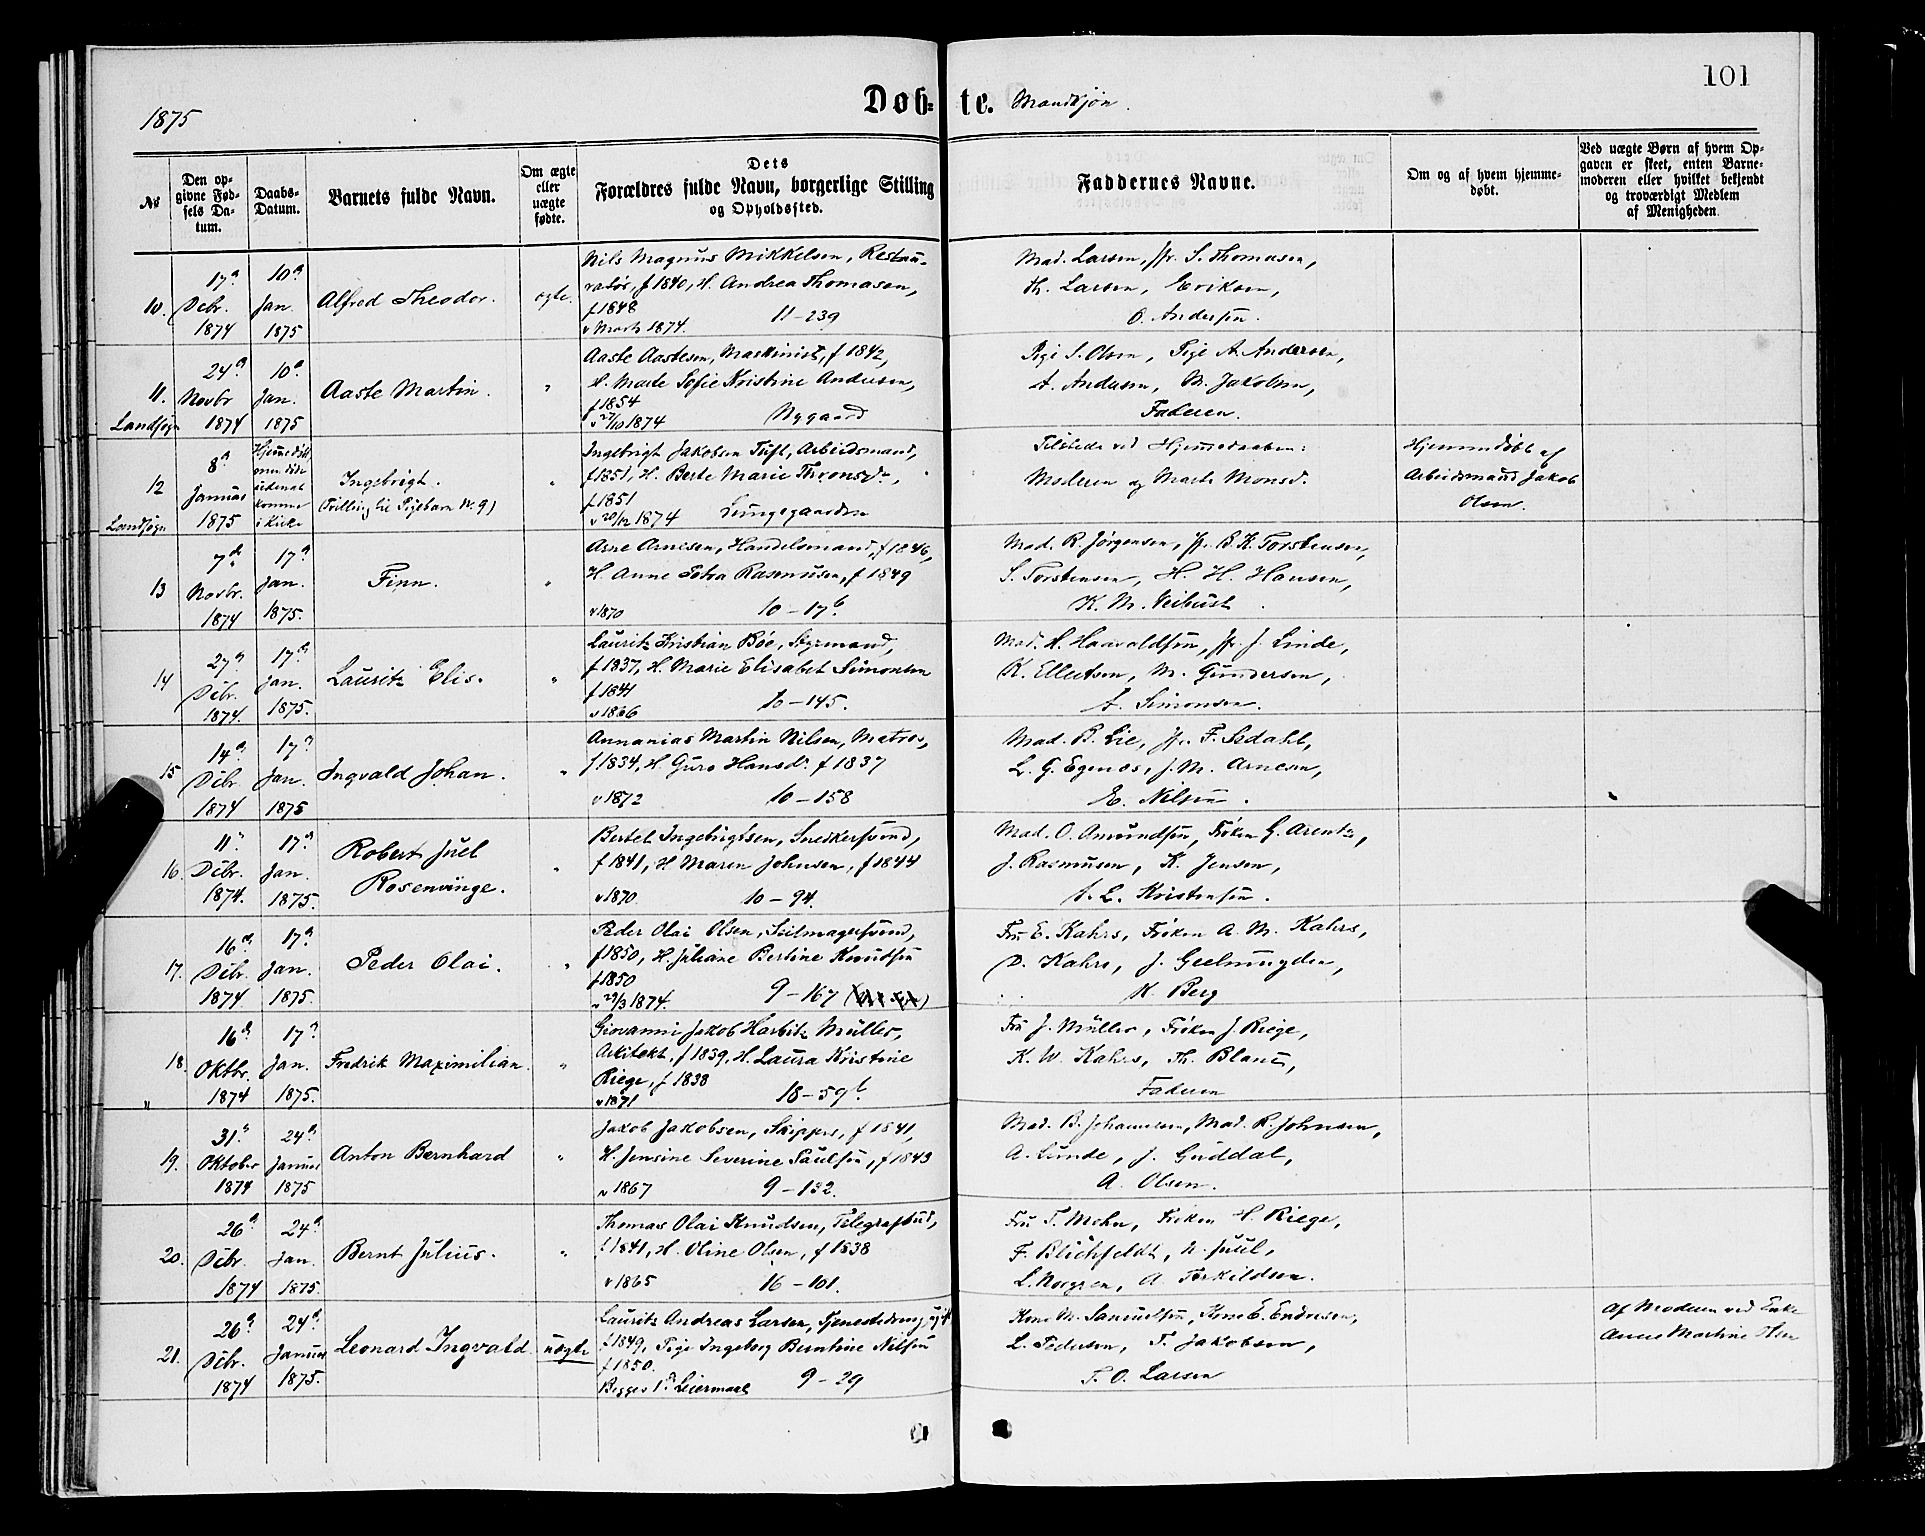 101
1875
Døb- te. Mandkjøn.
№
Den op-
givne Fød-
sels Da-
tum.
Daabs-
Datum.
Barnets fulde Navn.
Om ægte
eller
uægte
fødte.
Dets
Forældres fulde Navn, borgerlige Stilling
og Opholdssted.
Faddernes Navne.
Om og af hvem hjemme-
døbt.
Ved uægte Børn af hvem Op-
gaven er skeet, enten Barne-
moderen eller hvilket bekjendt
og troværdigt Medlem
af Menigheden.
10.
17d
Dcbr.
1874
10d
Jan.
1875
Alfred Theodor.
ægte.
Nils Magnus Mikkelsen, Restau-
ratør, f 1840, H. Andrea Thomasen,
f 1848
v Marts 1874. 11-239
Mad. Larsen, Jfr. S. Thomasen,
Th. Larsen, Eriksen,
O. Andersen.
11.
Landsogn
24d
Novbr
1874
10d
Jan.
1875
Aaste Martin.
"
Aaste Aastesen, Maskinist, f 1842,
H. Marte Sofie Kristine Andersen,
f 1854
v 27/10 1874 Nygaard
Pige S. Olsen, Pige A. Andersen,
A. Andersen, M. Jakobsen,
Faderen.
12
Landsogn
8d
Januar
1875
Hjemmedøbt
men døde
udenat
komme
i Kirke
Ingebrigt.
(Tvilling til Pigebarn Nr. 9)
"
Ingebrigt Jakobsen Tuft, Arbeidsmand,
f 1851, H. Berte Marie Thronsdr,
f 1851
v 20/12 1874 Lungegaarden
Tilstede ved Hjemmedaaben:
Moderen og Marte Monsd.
Hjemmedøbt af
Arbeidsmand Jakob
Olsen.
13
7d
Novbr.
1874
17d
Jan.
1875.
Finn.
"
Arne Arnesen, Handelsmand, f 1846,
H. Anne Petra Rasmusen, f 1849
v 1870 10-17b
Mad. R. Jørgensen, Jfr. B. K. Torstensen,
S. Torstensen, H. H. Hansen,
K. M. Veibust.
14
27d
Dcbr.
1874.
17d
Jan.
1875.
Lauritz Elis.
"
Lauritz Kristian Bøe, Styrmand,
f 1837, H. Marie Elisabet Simonsen
f 1841
v 1866 10-145.
Mad. H. Haavoldsen, Jfr. J. Linde,
K. Ellertsen, M. Gundersen,
A. Simonsen.
15
14d
Dcbr.
1874
17d
Jan.
1875
Ingvald Johan.
"
Annanias Martin Nilsen, Matros,
f 1834, H. Guro Hansdr. f 1837
v 1872 10-158
Mad. B. Lie, Jfr. F. Asdahl,
L. G. Egenæs, J. M. Arnesen,
E. Nilsen.
16.
11d
Dcbr.
1874.
17d
Jan.
1875.
Robert Juel
Rosenvinge.
"
Bertel Ingebrigtsen, Snedkersvend,
f 1841, H Maren Johnsen, f 1844
v 1870 10-94.
Mad. O. Amundsen, Frøken G. Arentz,
J. Rasmusen, K. Jensen,
A. L. Kristensen.
17.
16d
Dcbr.
1874
17d
Jan.
1875.
Peder Olai.
"
Peder Olai Olsen, Seilmagersvend,
f 1850, H. Juliane Bertine Knudsen
f 1850
v 29/3 1874. 9-167
Fru E. Kahrs, Frøken A. M. Kahrs,
D. Kahrs, J. Geelmuyden,
K. Berg
18.
"
16d
Oktbr.
1874
17d
Jan.
1875.
Fredrik Maximilian.
"
Giovanni Jakob Harbitz Müller,
Arkitekt, f 1839, H. Laura Kristine
Riege, f 1838
v 1871 18-59b.
Fru J. Müller, Frøken J. Riege,
K. W. Kahrs, Th. Blanc,
Faderen
19.
31d
Oktober
1874
24d
Januar
1875
Anton Bernhard
"
Jakob Jakobsen, Skipper, f 1841,
H. Jensine Severine Paulsen, f 1843
v 1867 9-132.
Mad. B. Johannesen, Mad. R. Johnsen,
A. Lunde, J. Guddal,
A. Olsen.
20.
26d
Dcbr.
1874
24d
Jan.
1875.
Bernt Julius.
"
Thomas Olai Knudsen, Telegrafbud,
f 1841, H. Oline Olsen, f 1838
v 1865 16-101.
Fru T. Mohn, Frøken H. Riege,
F. Blichfeldt, N. Juul,
L. Norgren, A. Terkildsen.
21.
26d
Dcbr.
1874
24d
Januar
1875.
Leonard Ingvald
uægte
Lauritz Andreas Larsen, Tjenestedreng, ugift
f 1849, Pige Ingeborg Berntine Nilsen
f 1850.
Begges 1d Leiermaal 9-29
Kone M. Samuelsen, Kone E. Endresen,
L. Pedersen, T. Jakobsen,
T. O. Larsen
Af Moderen ved Enke
Anne Martine